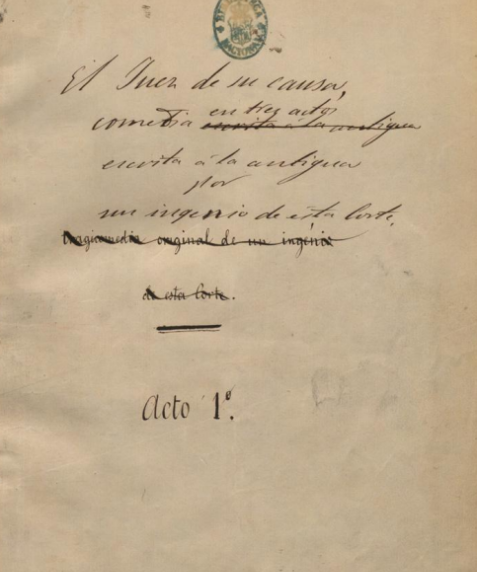 BIBLIOTECA NACIONAL
El Juez de su causa,
en tres actos
comedia escrita á la antigua
escrita á la antigua
por
un ingenio de esta Corte.
tragicomedia original de un ingénio
de esta Corte.
Acto 1º.